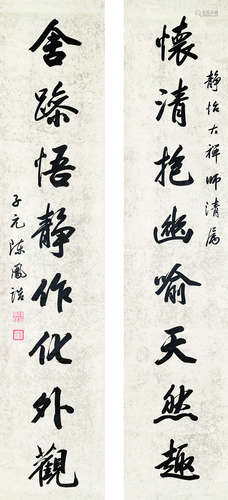 靜怡大禪師清屬
懷清抱幽喻天然趣
舍躁悟靜作化外觀
子元陳鳳誥